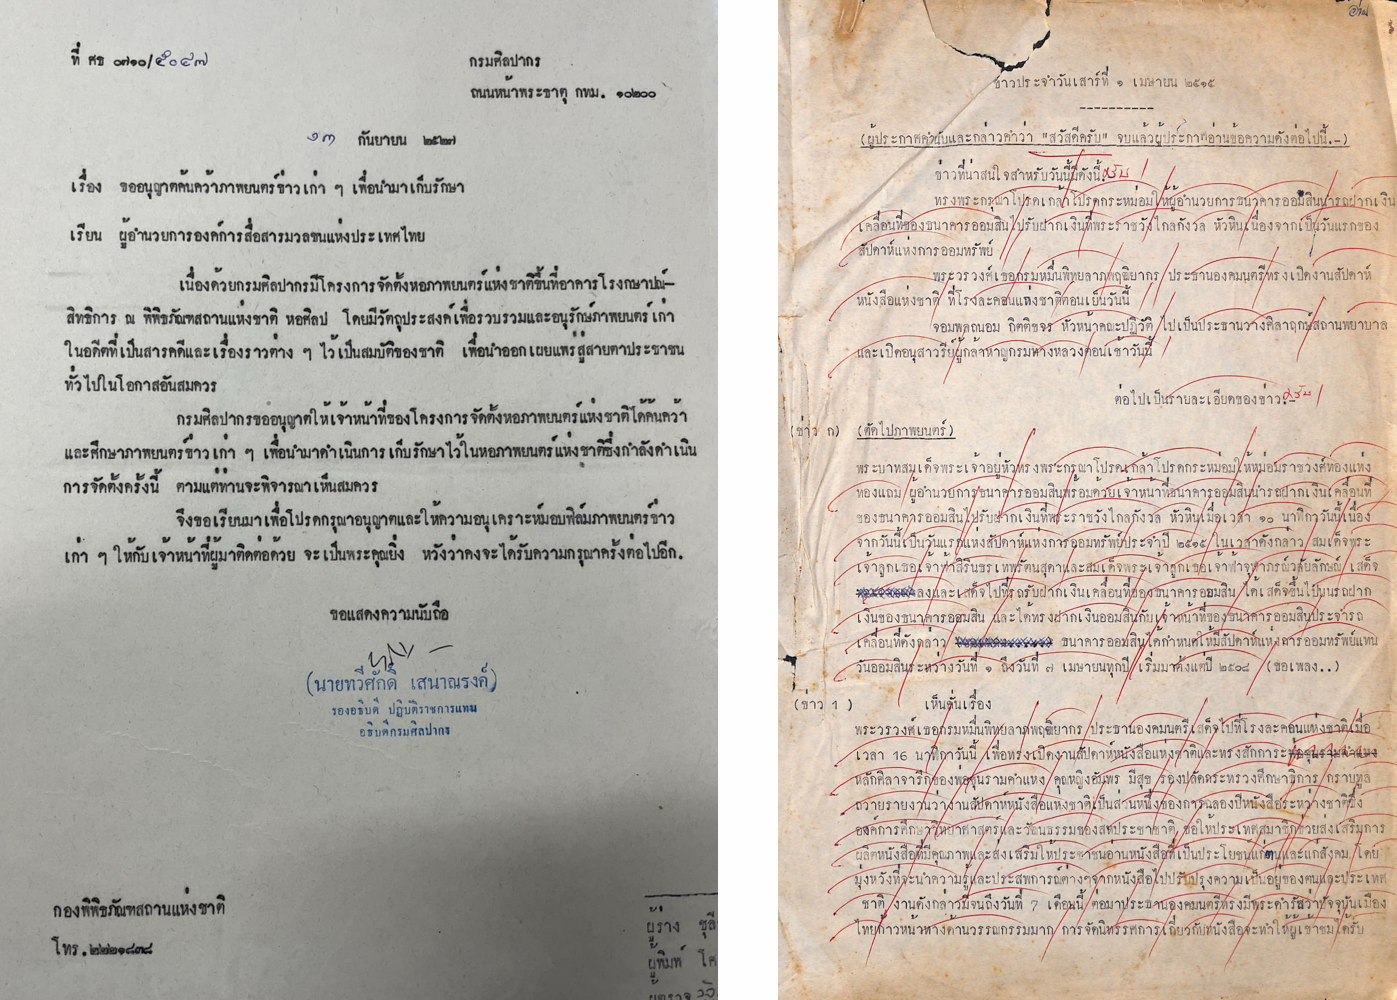 ที่ ศธ ๐๗๑๐/๕๐๔๗
กรมศิลปากร
ถนนหน้าพระธาตุ กทม. ๑๐๒๐๐
๑๓ กันยายน ๒๕๒๗
เรื่อง ขออนุญาตค้นคว้าภาพยนตร์ข่าวเก่า ๆ เพื่อนำมาเก็บรักษา
เรียน ผู้อำนวยการองค์การสื่อสารมวลชนแห่งประเทศไทย
เนื่องด้วยกรมศิลปากรมีโครงการจัดตั้งหอภาพยนตร์แห่งชาติขึ้นที่อาคารโรงกษาปณ์-
สิทธิการ ณ พิพิธภัณฑสถานแห่งชาติ หอศิลป โดยมีวัตถุประสงค์เพื่อรวบรวมและอนุรักษ์ภาพยนตร์เก่า
ในอดีตที่เป็นสารคดีและเรื่องราวต่าง ๆ ไว้เป็นสมบัติของชาติ เพื่อนำออกเผยแพร่สู่สายตาประชาชน
ทั่วไปในโอกาสอันสมควร
กรมศิลปากรขออนุญาตให้เจ้าหน้าที่ของโครงการจัดตั้งหอภาพยนตร์แห่งชาติได้ค้นคว้า
และศึกษาภาพยนตร์ข่าวเก่า ๆ เพื่อนำมาดำเนินการเก็บรักษาไว้ในหอภาพยนตร์แห่งชาติซึ่งกำลังดำเนิน
การจัดตั้งครั้งนี้ ตามแต่ท่านจะพิจารณาเห็นสมควร
จึงขอเรียนมาเพื่อโปรดกรุณาอนุญาตและให้ความอนุเคราะห์มอบฟิล์มภาพยนตร์ข่าว
เก่า ๆ ให้กับเจ้าหน้าที่ผู้มาติดต่อด้วย จะเป็นพระคุณยิ่ง หวังว่าคงจะได้รับความกรุณาครั้งต่อไปอีก.
ขอแสดงความนับถือ
(นายทวีศักดิ์ เสนาณรงค์)
รองอธิบดี ปฏิบัติราชการแทน
อธิบดีกรมศิลปากร
กองพิพิธภัณฑสถานแห่งชาติ
โทร.๒๒๒๑๘๓๘
ผู้ร่าง
ผู้พิมพ์
ผู้ตรวจ
อ่าน
ข่าวประจำวันเสาร์ที่ ๑ เมษายน ๒๕๑๕
----------
(ผู้ประกาศคำนับและกล่าวคำว่า "สวัสดีครับ" จบแล้วผู้ประกาศอ่านข้อความดังต่อไปนี้.-)
ข่าวที่น่าสนใจสำหรับวันนี้มีดังนี้ ครับ
ทรงพระกรุณาโปรดเกล้าโปรดกระหม่อมให้ผู้อำนวยการธนาคารออมสินนำรถฝากเงิน
เคลื่อนที่ของธนาคารออมสินไปรับฝากเงินที่พระราชวังไกลกังวล หัวหินเนื่องจากเป็นวันแรกของ
สัปดาห์แห่งการออมทรัพย์
พระวรวงศ์เธอกรมหมื่นพิทยลาภพฤฒิยากร ประธานองคมนตรีทรงเปิดงานสัปดาห์
หนังสือแห่งชาติ ที่โรงละคอนแห่งชาติตอนเย็นวันนี้
จอมพลถนอม กิตติขจร หัวหน้าคณะปฏิวัติ ไปเป็นประธานวางศิลาฤกษ์สถานพยาบาล
และเปิดอนุสาวรีย์ผู้กล้าหาญกรมทางหลวงตอนเช้าวันนี้
ต่อไปเป็นรายละเอียดของข่าว.- ครับ
(ข่าว ก) (ตัดไปภาพยนตร์)
พระบาทสมเด็จพระเจ้าอยู่หัวทรงพระกรุณาโปรดเกล้าโปรดกระหม่อมให้หม่อมราชวงศ์ทองแท่ง
ทองแถม ผู้อำนวยการธนาคารออมสินพร้อมด้วยเจ้าหน้าที่ธนาคารออมสินนำรถฝากเงินเคลื่อนที่
ของธนาคารออมสินไปรับฝากเงินที่พระราชวังไกลกังวล หัวหินเมื่อเวลา ๑๐ นาฬิกาวันนี้เนื่อง
จากวันนี้เป็นวันแรกแห่งสัปดาห์แห่งการออมทรัพย์ประจำปี ๒๕๑๕ ในเวลาดังกล่าว สมเด็จพระ
เจ้าลูกเธอเจ้าฟ้าสิรินธรเทพรัตนสุดาและสมเด็จพระเจ้าลูกเธอเจ้าฟ้าจุฬาภรณ์วลัยลักษณ์ เสด็จ
ลงและเสด็จไปที่รถรับฝากเงินเคลื่อนที่ของธนาคารออมสิน ได้เสด็จขึ้นไปบนรถฝาก
เงินของธนาคารออมสิน และได้ทรงฝากเงินออมสินกับเจ้าหน้าที่ของธนาคารออมสินประจำรถ
เคลื่อนที่ดังกล่าว ธนาคารออมสินได้กำหนดให้มีสัปดาห์แห่งการออมทรัพย์แทน
วันออมสินระหว่างวันที่ ๑ ถึงวันที่ ๗ เมษายนทุกปี เริ่มมาตั้งแต่ปี ๒๕๐๘ (ขอเพลง..)
(ข่าว 1 ) เห็นชั่นเรื่อง
พระวรวงศ์เธอกรมหมื่นพิทยลาภพฤฒิยากร ประธานองคมนตรีเสด็จไปที่โรงละคอนแห่งชาติเมื่อ
เวลา 16 นาฬิกาวันนี้ เพื่อทรงเปิดงานสัปดาห์หนังสือแห่งชาติและทรงสักการะพ่อขุนรามคำแหง
หลักศิลาจารึกของพ่อขุนรามคำแหง คุณหญิงอัมพร มีสุข รองปลัดกระทรวงศึกษาธิการ กราบทูล
ถวายรายงานว่างานสัปดาห์หนังสือแห่งชาติเป็นส่วนหนึ่งของการฉลองปีหนังสือระหว่างชาติซึ่ง
องค์การศึกษาวิทยาศาสตร์และวัฒนธรรมของสหประชาชาติ ขอให้ประเทศสมาชิกช่วยส่งเสริมการ
ผลิตหนังสือที่มีคุณภาพและส่งเสริมให้ประชาชนอ่านหนังสือที่เป็นประโยชน์แก่ตนและแก่สังคม โดย
มุ่งหวังที่จะนำความรู้และประสพการณ์ต่างๆจากหนังสือไปปรับปรุงความเป็นอยู่ของตนและประเทศ
ชาติ งานดังกล่าวมีจนถึงวันที่ 7 เดือนนี้ ต่อมาประธานองคมนตรีทรงมีพระดำรัสว่าปัจจุบันเมือง
ไทยก้าวหน้าทางด้านวรรณกรรมมาก การจัดนิทรรศการเกี่ยวกับหนังสือจะทำให้ผู้เข้าชมได้รับ